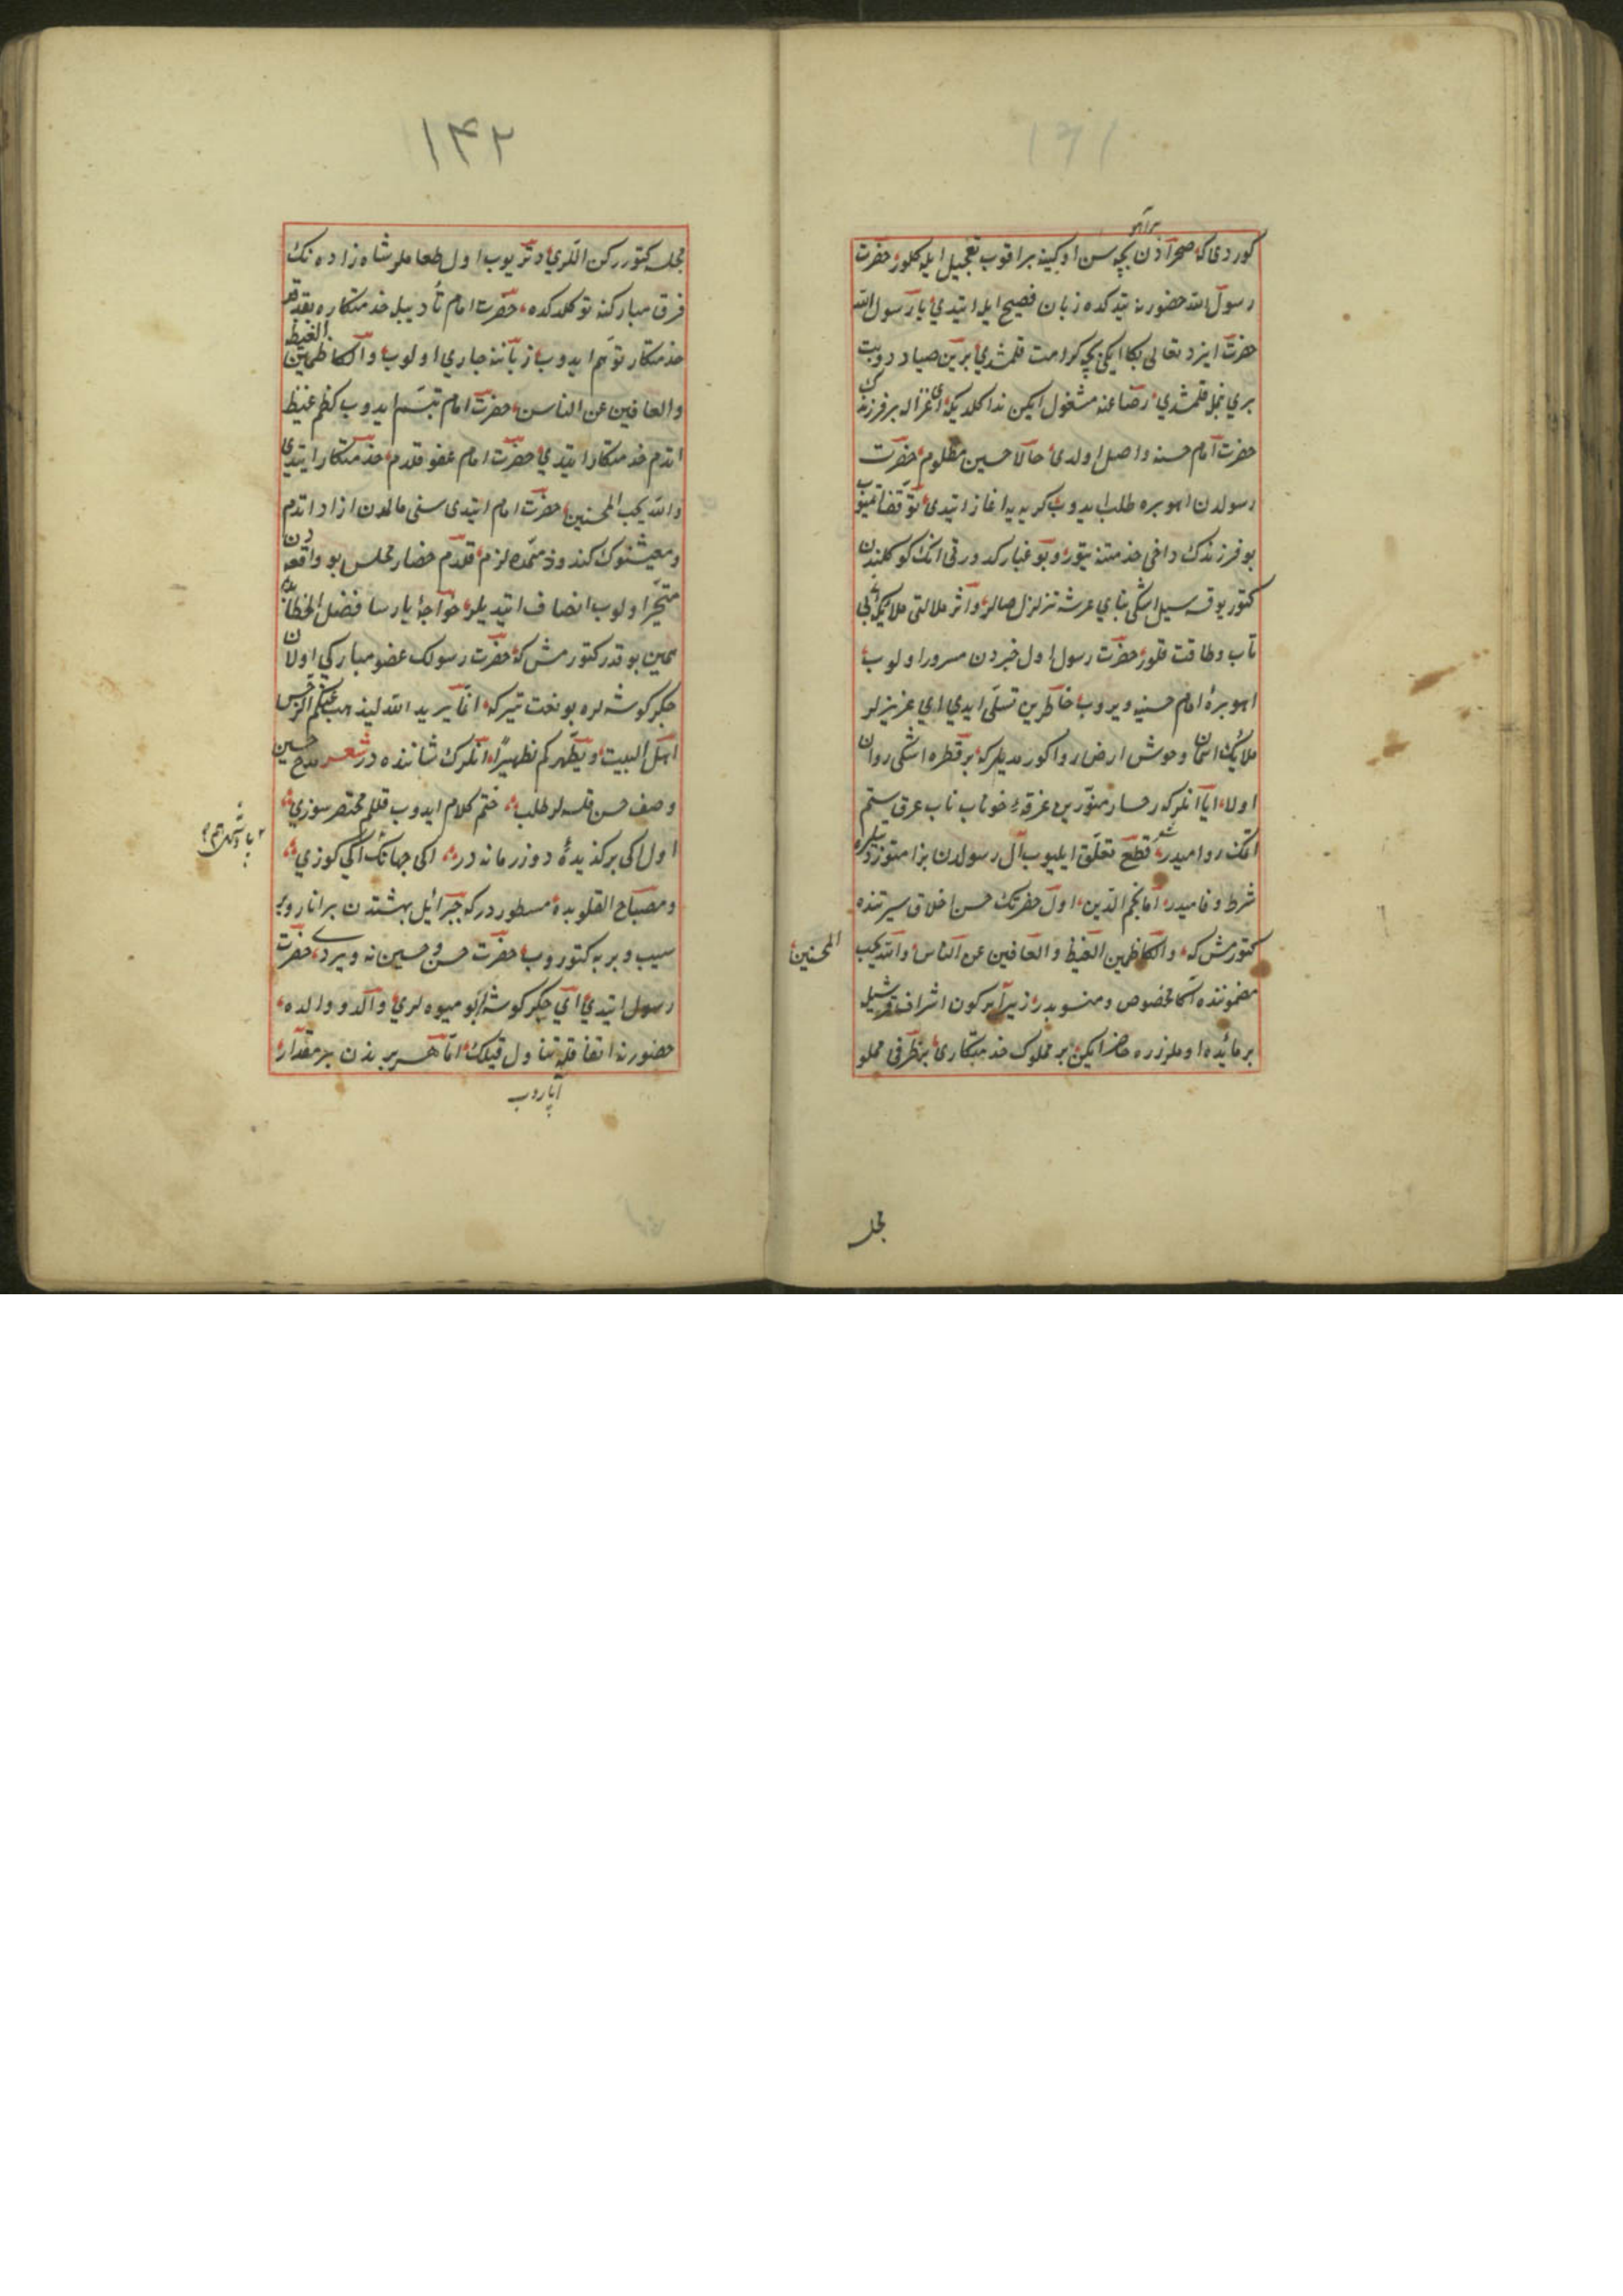 ۱۴۱
برآهو
كوردى كه صحرآدن بچه سن اوكينه براقوب تعجيل ايله كلور حضرت
رسول الله حضورنه يتدكده زبان فصيح ايله ايتدي يا رسول الله
حضرت ايزد تعالى بكا ايكى بچه كرامت قلمشدي برين صياد دوتب
بري بنمله قلمشدي رضاعنه مشغول ايكن ندا كلديكه اى غزاله بر فرزندك
حضرت امام حسنه واصل اولدى حالا حسين مظلوم حضرت
رسولدن اهو بره طلب ايدوب كريه يه اغاز ايتدى توقف ايتميوب
بو فرزندك داخى خدمتنه يتور وبو غبار كدورتى انك كوكلندن
كتور يوقسه سيل اشكى بناي عرشه تزلزل صالر واثر ملالتى ملايكه ئى بى
تاب وطاقت قلور حضرت رسول اول خبردن مسرور اولوب
اهو بره ئى امام حسينه ويروب خاطرين تسلى ايدي اي عزيزلر
ملائك اسمان وحوش ارض روا كورمديلر كه بر قطره اشكى روان
اولا ايا انلر كه رخسار منورين غرقهٔ خوناب ناب عرق ستم
اتمك روا ميدر قطع تعلق ايليوب آل رسولدن
شرط وفا ميدر اما نجم الدين اول حضرتك حسن اخلاق سيرتنده
كتورمش كه والكاظمين الغيظ والعافين عن الناس والله يحب
المحسنين
مضموننده اكا مخصوص ومنسوبدر زيرا بر كون اشراف قريشيله
بر مائده اوملرزره حاضر ايكن بر مملوك خدمتكارى بر ظرفى مملو
مجله
۱۴۲
مجله كتورركن اللري دتريوب اول طعاملر شاه زاده نك
فرق مباركنه توكلدكده حضرت امام تأديبله خدمتكاره بقدقده
خدمتكار توهم ايدوب زباننه جاري اولوب والكاظمين الغيظ
والعافين عن الناس حضرت امام تبسم ايدوب كظم غيظ
اتدم خدمتكار ايتدي حضرت امام عفو قلدم خدمتكار ايتدى
والله يحب المحسنين حضرت امام ايتدى سنى مالمدن ازاد اتدم
ومعيشتوك كندو ذمتمده لازم قلدم حضار مجلس بو واقعه دن
متحير اولوب انصاف ايتديلر خواجهٔ پارسا فضل الخطابده
همين بو قدر كتورمش كه حضرت رسولك عضو مباركي اولان
جكر كوشه لره بو نعت يتر كه انما يريد الله ليذهب عنكم الرجس
اهل البيت ويطهركم تطهيرا انلرك شاننده در شعر مدح حسين
وصف حسن قلسه لر طلب ختم كلام ايدوب قللم مختصر سوزي
اول اكى بركزيدهٔ دوز زمانه در اكى جهانك اكي كوزي
ومصباح القلوبده مسطوردر كه جبرائيل بهشتدن بر انار وبر
سيب وبر به كتوروب حضرت حسن وحسينه ويردى حضرت
رسول ايتدي اي جكر كوشه لر بو ميوه لري والد ووالده
حضورنه اتفاقله تناول قيلك اما هر بريندن بر مقدار
آپاروب